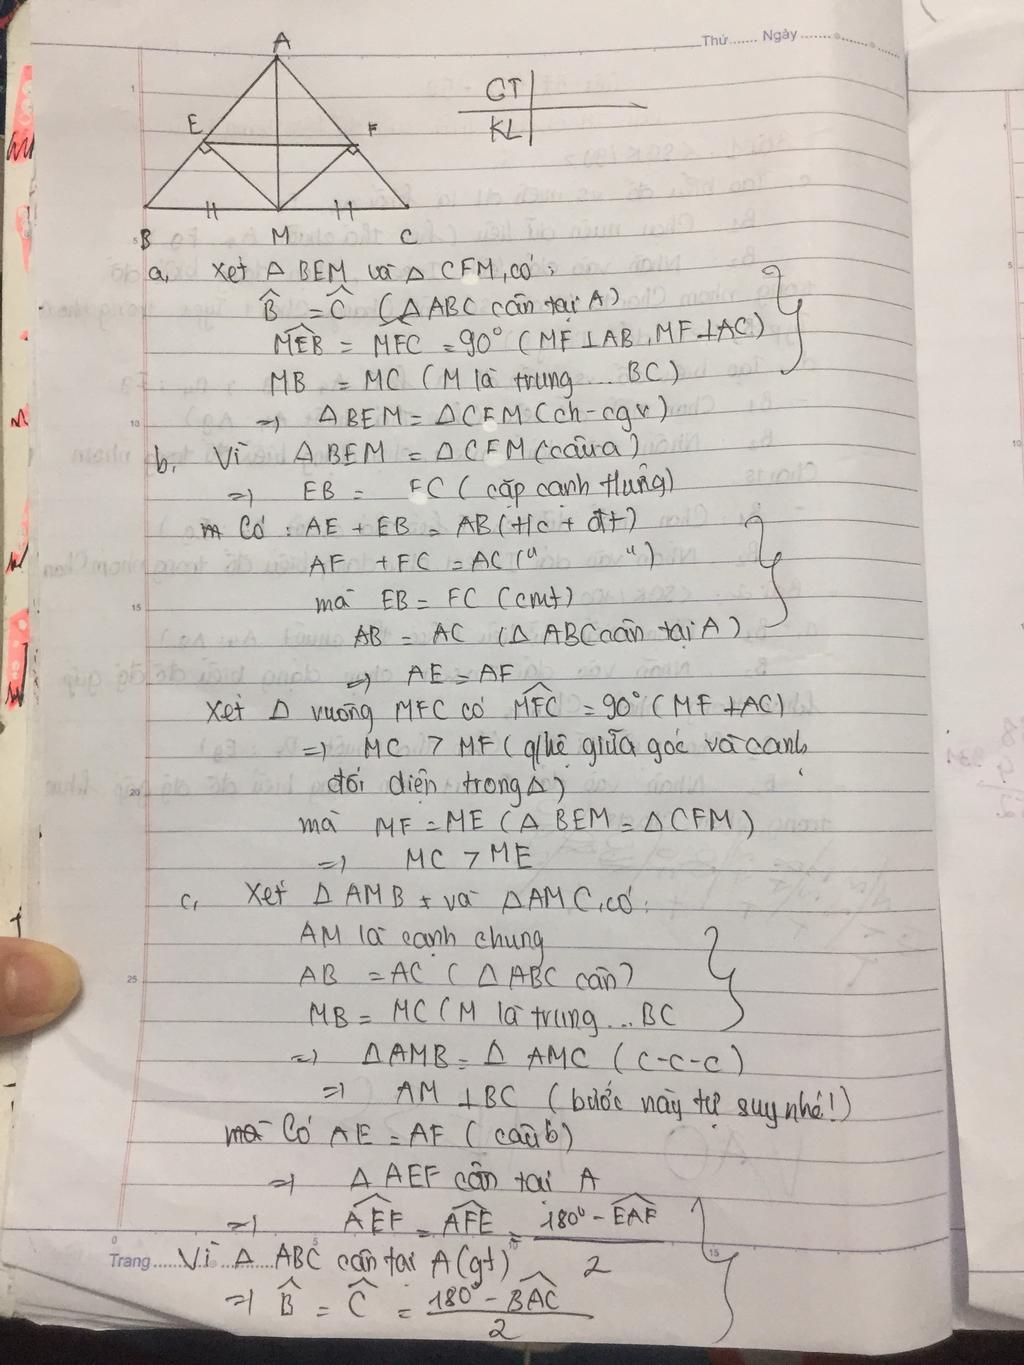 Thứ....... Ngày ...............
A
GT
KL
E
F
B
M
C
a, Xét Δ BEM và Δ CFM, có:
B̂ = Ĉ (Δ ABC cân tại A)
MEB = MFC = 90° (MF ⊥ AB, MF ⊥ AC)
MB = MC (M là trung ... BC)
=> Δ BEM = Δ CFM (ch-cgv)
b, Vì Δ BEM = Δ CFM (câu a)
=> EB = FC (cặp cạnh tứng)
Có : AE + EB = AB (t/c + đt)
AF + FC = AC (" ")
mà EB = FC (cmt)
AB = AC (Δ ABC cân tại A)
=> AE = AF
Xét Δ vuông MFC có MFC = 90° (MF ⊥ AC)
=> MC > MF (q/hệ giữa góc và cạnh
đối diện trong Δ)
mà MF = ME (Δ BEM = Δ CFM)
=> MC > ME
c, Xét Δ AMB và Δ AMC, có:
AM là cạnh chung
AB = AC (Δ ABC cân)
MB = MC (M là trung ... BC
=> Δ AMB = Δ AMC (c-c-c)
=> AM ⊥ BC (bước này tự suy nhé!)
Có AE = AF (câu b)
=> Δ AEF cân tại A
=> AEF = AFE = 180° - EAF
2
Trang..... Vì Δ ABC cân tại A (gt)
=> B̂ = Ĉ = 180° - BAC
2